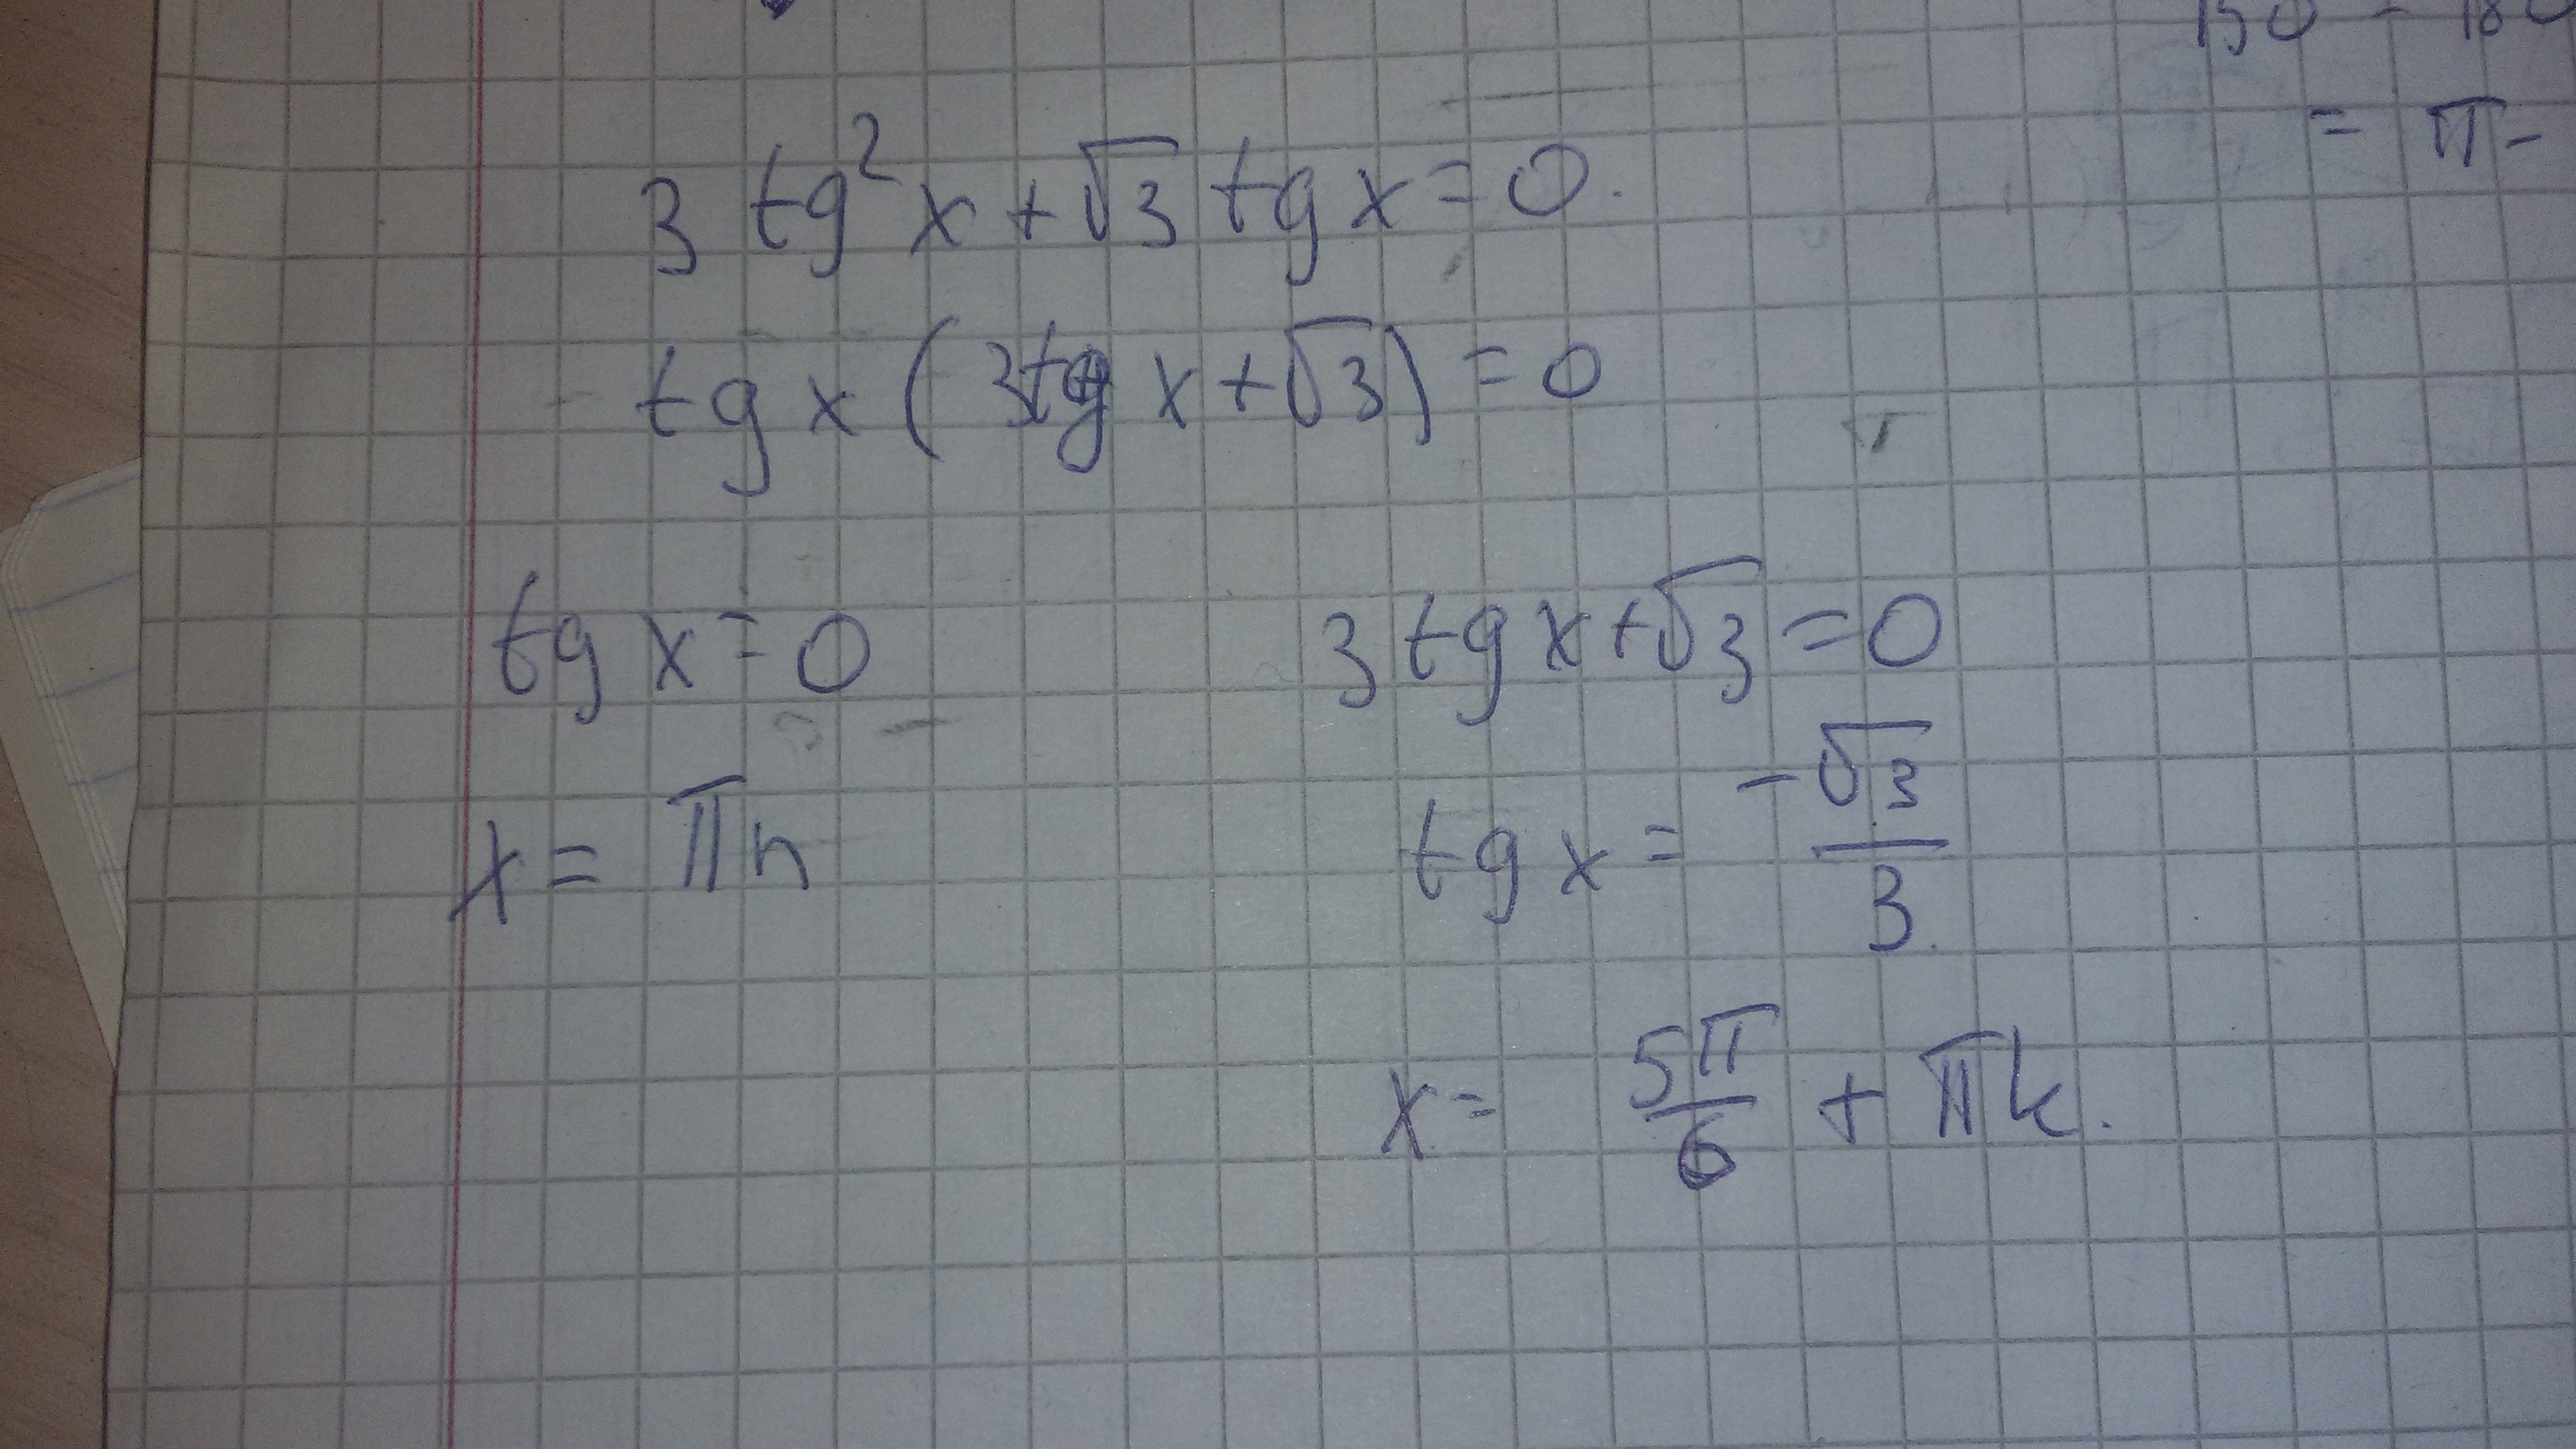 150 - 180
= π-
3 tg² x + √3 tg x = 0.
tg x ( 3tg x + √3 ) = 0
tg x = 0
x = πn
3 tg x + √3 = 0
tg x = -√3/3.
x = 5π/6 + πk.